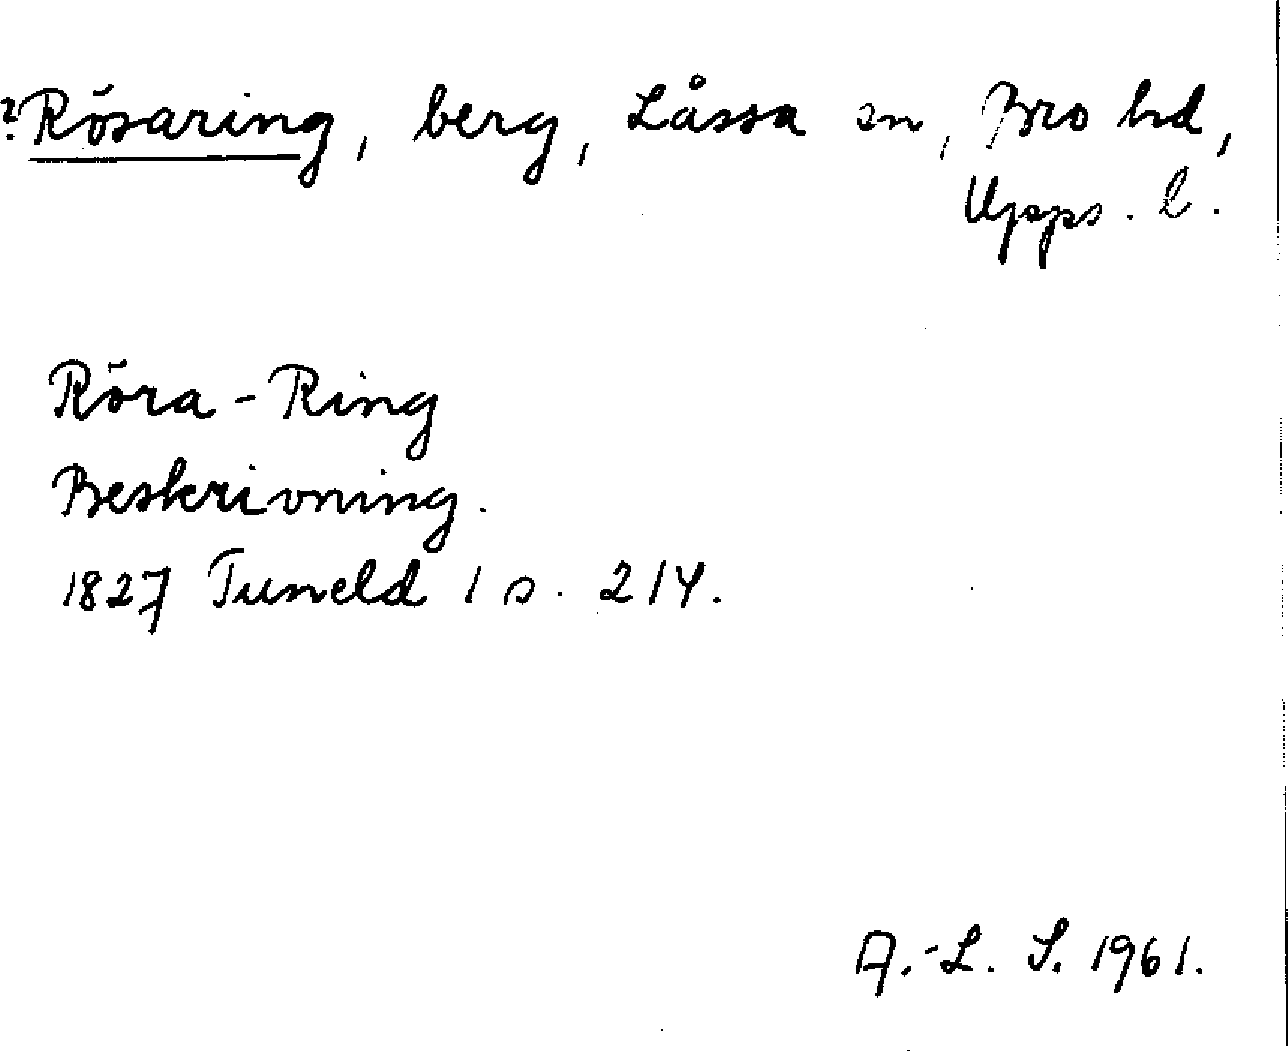 ?Rösaring, berg, Låssa sn, Bro hd,
Upps. l.
Röra-Ring
Beskrivning.
1827 Tuneld 1 s. 214.
A.-L. S. 1961.